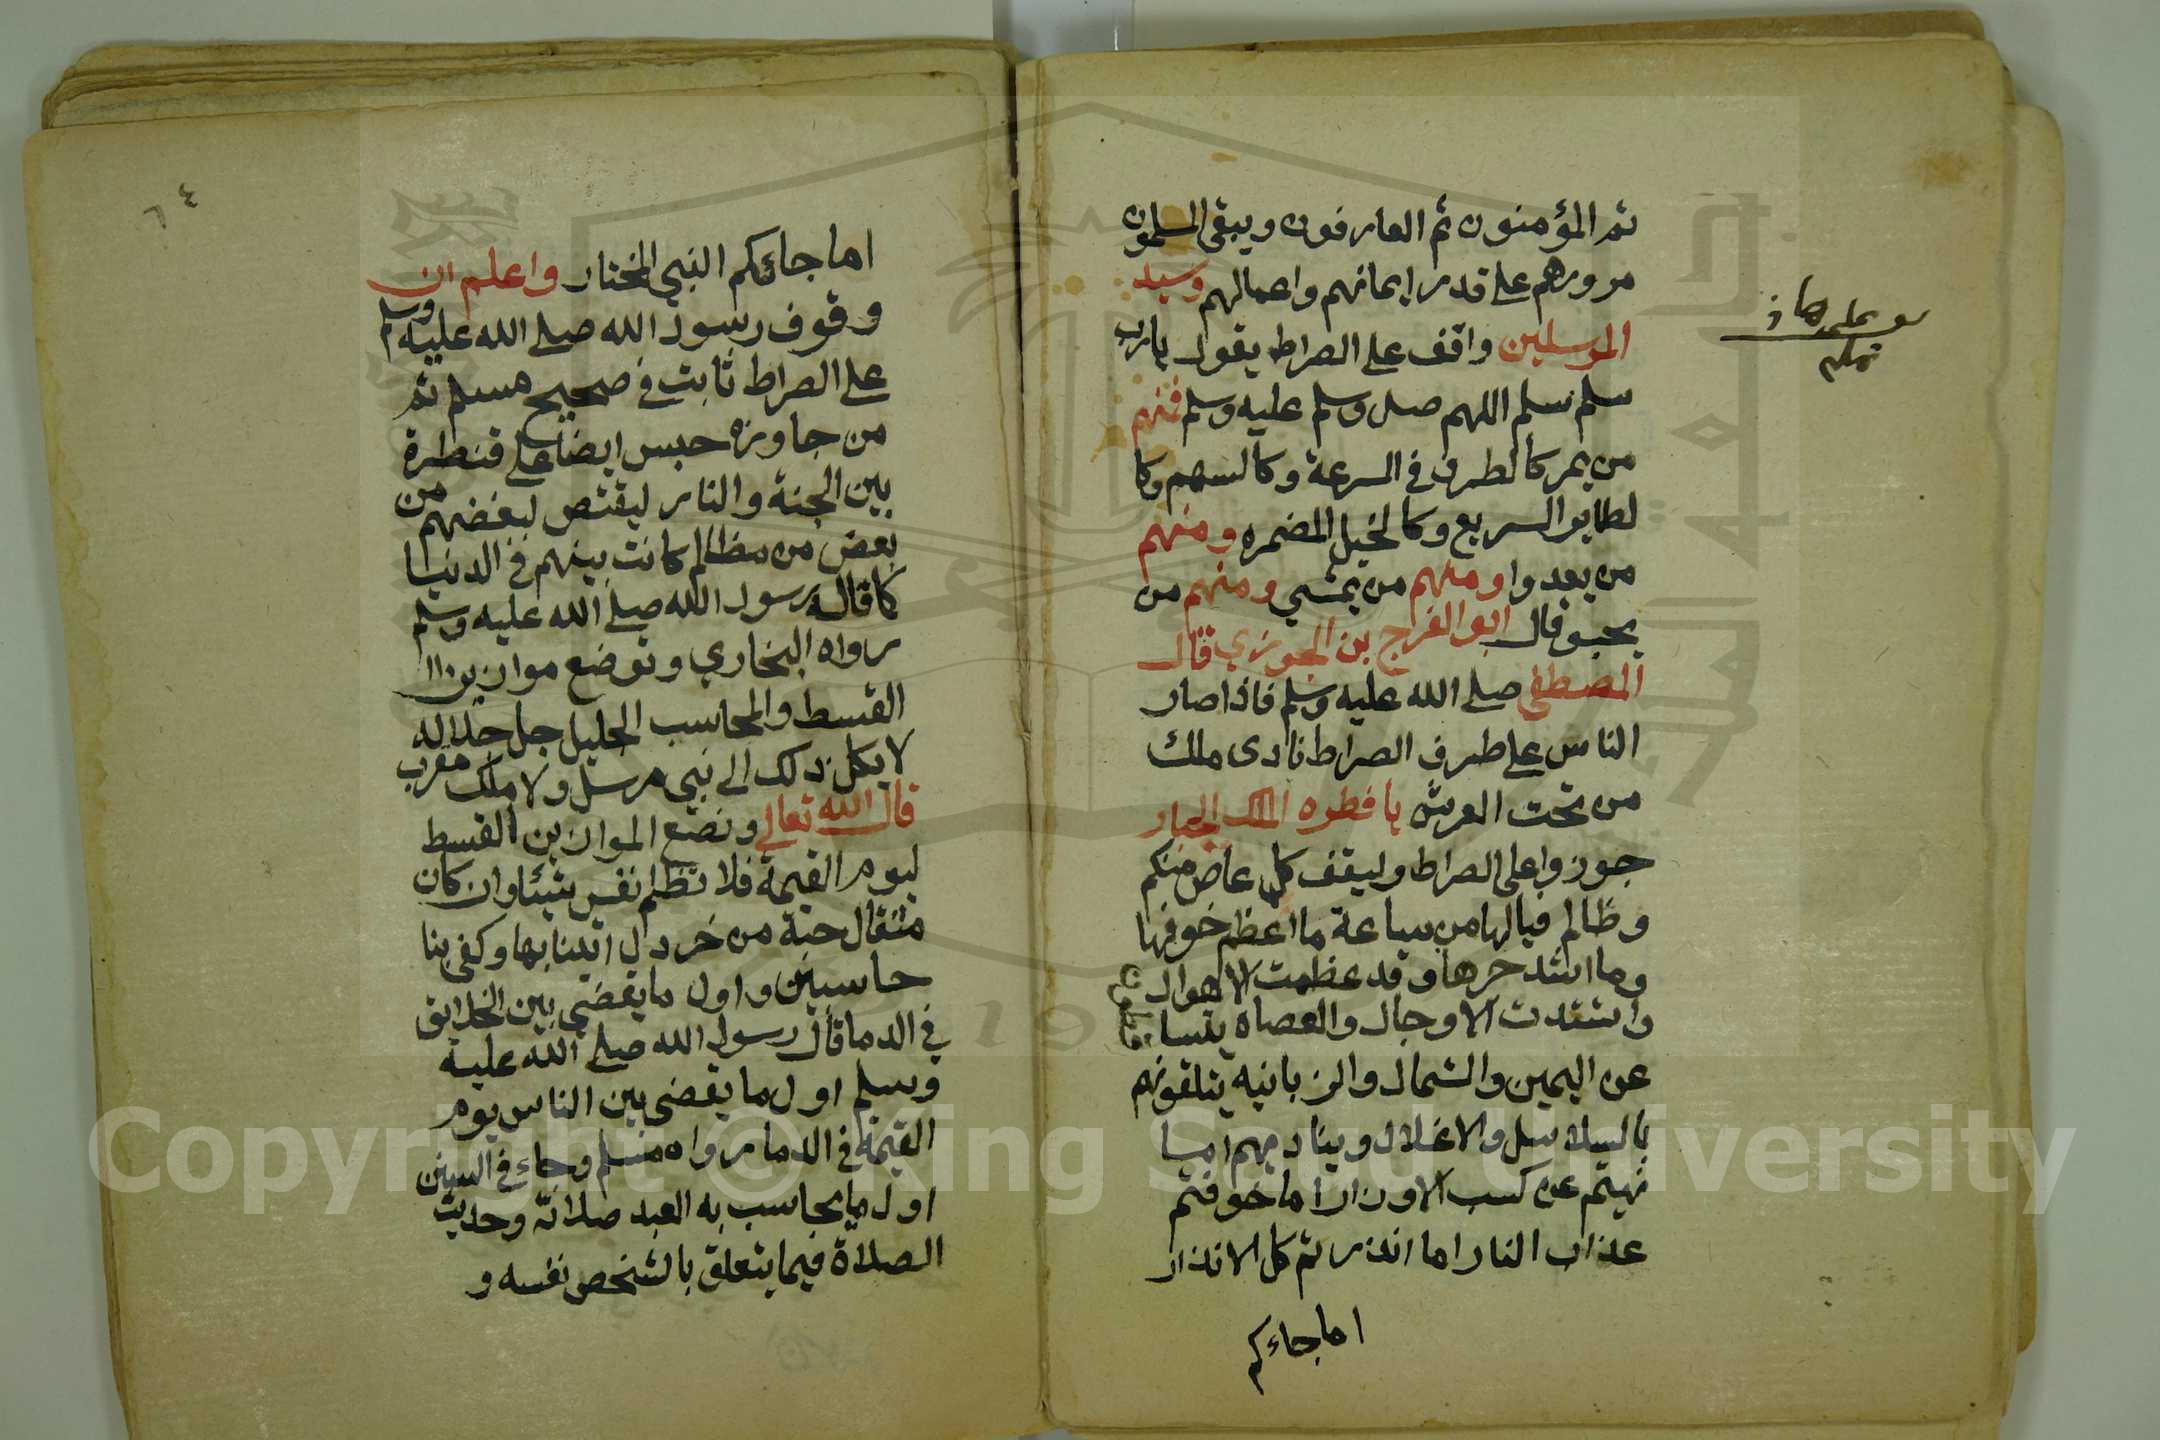 ثم المؤمنون ثم العارفون ويبقى المسلمون
مرورهم على قدر ايمانهم واعمالهم وسيد
المرسلين واقف على الصراط يقول يارب
سلم سلم اللهم صل وسلم عليه وسلم فمنهم
من يمر كالطرف في السرعة وكالسهم وكا
لطاير السريع وكالخيل المضمره ومنهم
من يعدوا ومنهم من يمشي ومنهم من
يحبو قال ابو الفراج بن الجوزي قال
المصطفى صلى الله عليه وسلم فاذا صار
الناس على طرف الصراط نادى ملك
من تحت العرش يا فطره الملك الجبار
جوزوا على الصراط وليقف كل عاص منكم
وظالم فيالها من ساعة ما اعظم خوفها
وما اشد حرها وقد عظمت الاهوال
واشتدت الاوجال والعصاه يتساقطون
عن اليمين والشمال والزبانيه يتلقونهم
بالسلاسل والاغلال ويناديهم اما
نهيتم عن كسب الاوزار اما خوفتم
عذاب النار اما انذرتم كل الانذار
اما جاءكم
٦٤
اما جاءكم النبي المختار واعلم ان
وقوف رسول الله صلى الله عليه وسلم
على الصراط ثابت في صحيح مسلم ثم
من جاوزه حبس ايضا على قنطرة
بين الجنة والنار ليقتص لبعضهم من
بعض من مظالم كانت بينهم في الدنيا
كما قاله رسول الله صلى الله عليه وسلم
رواه البخاري وتوضع موازين ال
القسط والمحاسب الجليل جل جلاله
لا يكل ذلك الى نبي مرسل ولا ملك مقرب
قال الله تعالى ونضع الموازين القسط
ليوم القيمة فلا تظلم نفس شيئا وان كان
مثقال حبة من خردل اتينا بها وكفى بنا
حاسبين واول ما يقضي بين الخلايق
في الدما قال رسول الله صلى الله عليه
وسلم اول ما يقضى بين الناس يوم
القيمة في الدما رواه مسلم وجاء في السنن
اول ما يحاسب به العبد صلاته وحديث
الصلاة فيما يتعلق بالشخص نفسه و
Copyright © King Saud University